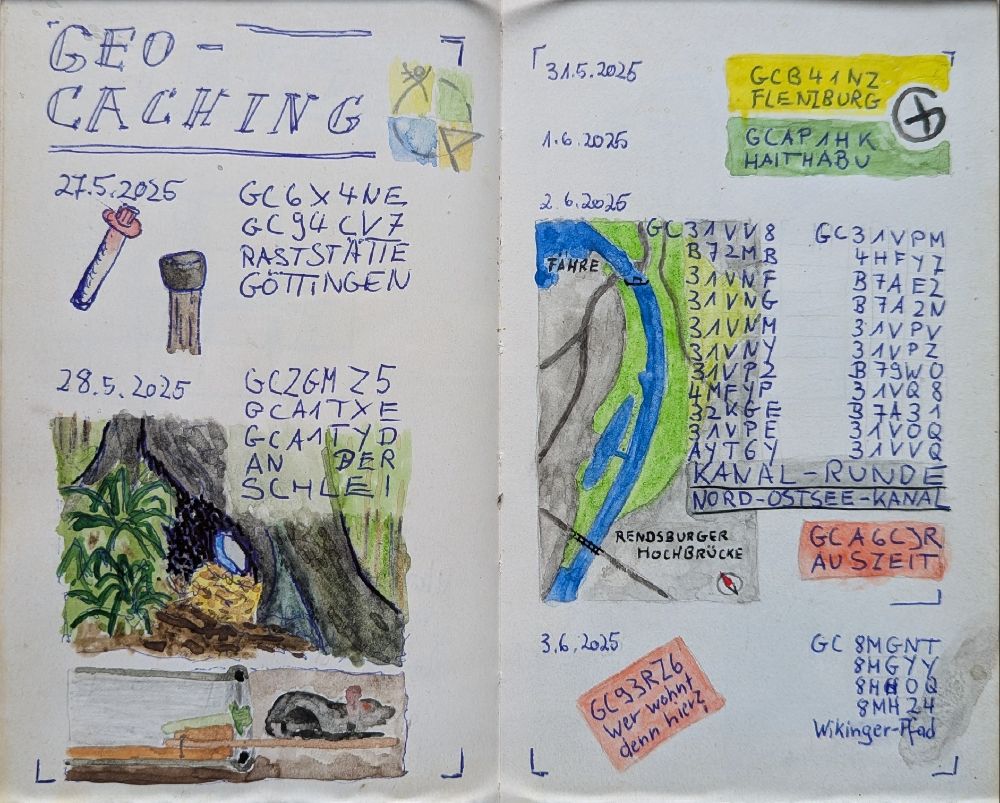 GEO-
CACHING
27.5.2025
GC6X4NE
GC94CV7
RASTSTÄTTE
GÖTTINGEN
28.5.2025
GCZGMZ5
GCA1TXE
GCA1TYD
AN DER
SCHLEI
31.5.2025
GCB41NZ
FLENZBURG
1.6.2025
GCAP1HK
HAITHABU
2.6.2025
FÄHRE
GC31VV8
B72MB
31VNF
31VNG
31VNM
31VNY
31VPZ
4MFYP
32KGE
31VPE
AYTGY
GC31VPM
4HFYZ
B7AEZ
B7A2N
31VPV
31VPZ
B79WO
31VQ8
B7A31
31VOQ
31VVQ
KANAL-RUNDE
NORD-OSTSEE-KANAL
RENDSBURGER
HOCHBRÜCKE
GCA6CJR
AUSZEIT
3.6.2025
GC93RZ6
Wer wohnt
denn hier?
GC 8MGNT
8HGYY
8HHOQ
8MH24
Wikinger-Pfad